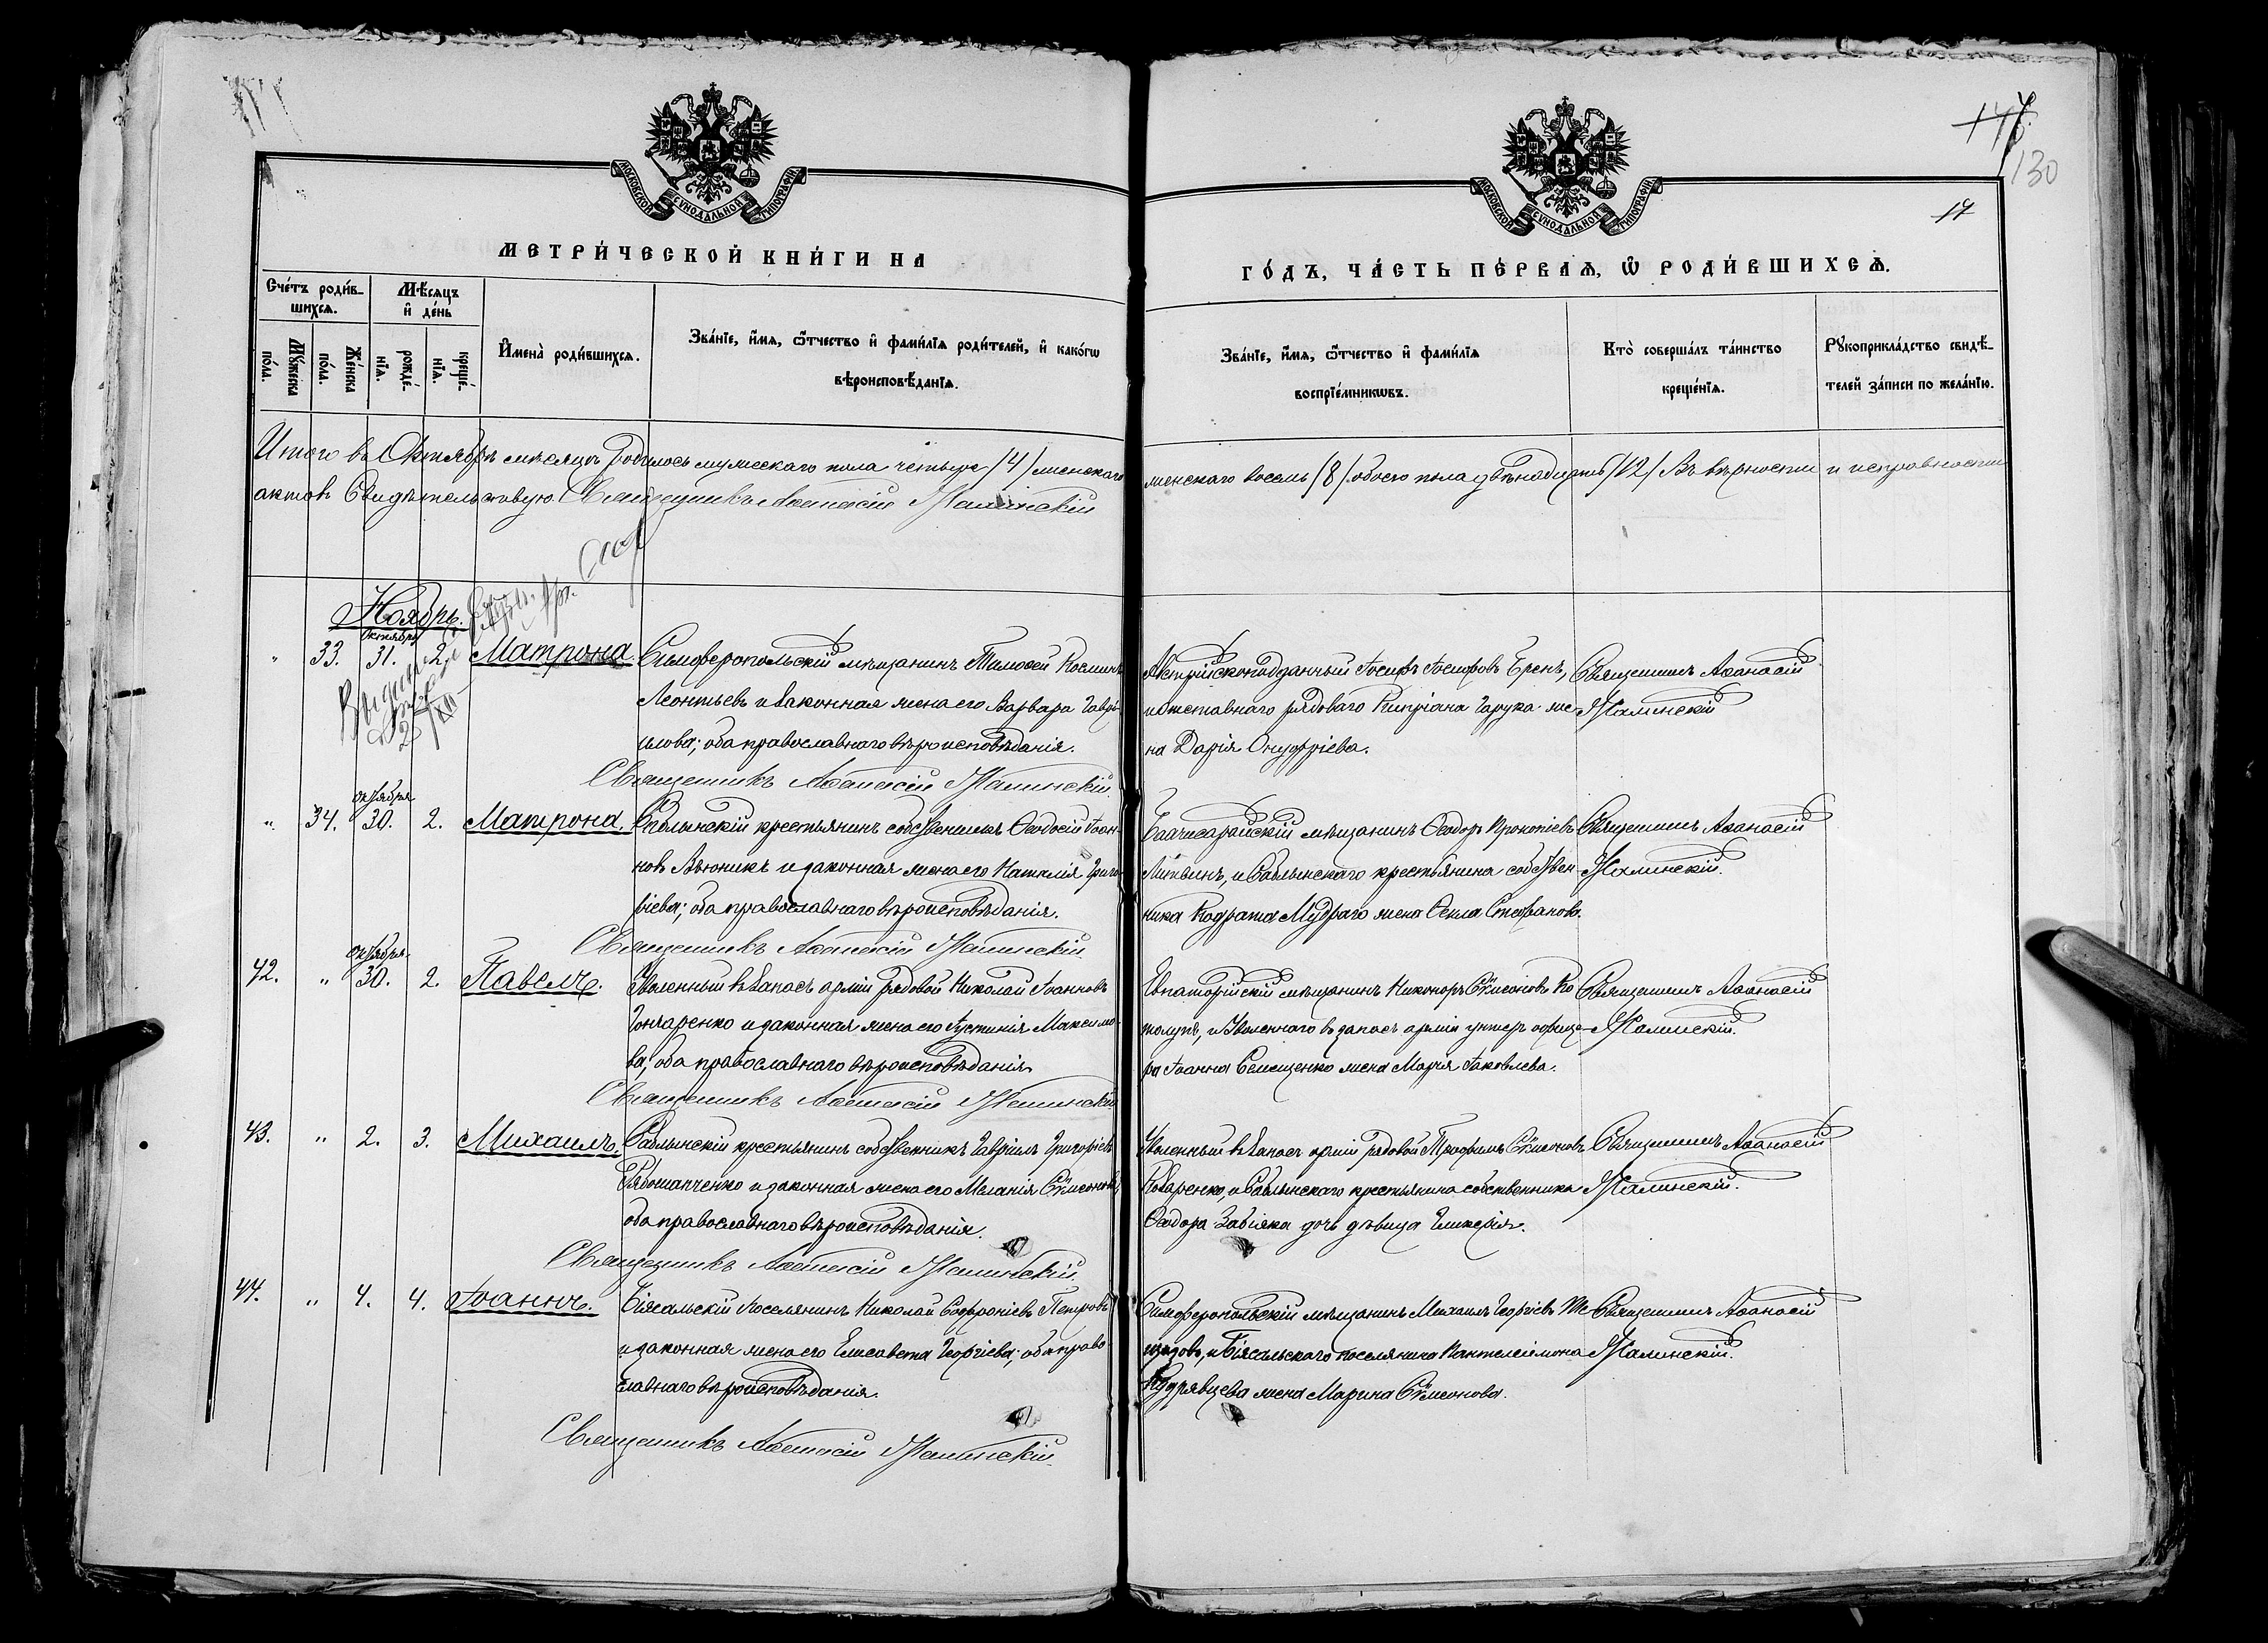 МОСКОВСКОЙ СѴНОДАЛЬНОЙ ТИПОГРАФІИ
МОСКОВСКОЙ СѴНОДАЛЬНОЙ ТИПОГРАФІИ
130
17
МЕТРИ́ЧЕСКОЙ КНИ́ГИ НА
ГО́ДЪ, ЧА́СТЬ ПЕ́РВАѦ, Ѽ РОДИ́ВШИХСѦ.
Сче́тъ роди́в-
шихсѧ.
Мꙋ́жеска по́ла.
Же́нска по́ла.
Мѣ́сѧцъ
и҆ де́нь
рожде́-
нїѧ.
креще́-
нїѧ.
И҆мена̀ роди́вшихсѧ.
Зва́нїе, и҆́мѧ, ѻ҆́тчество и҆ фами́лїѧ роди́телей, и҆ како́гѡ
вѣроисповѣ́данїѧ.
Зва́нїе, и҆́мѧ, ѻ҆́тчество и҆ фами́лїѧ
воспрїе́мникѡвъ.
Кто̀ соверша́лъ та́инство
креще́нїѧ.
Рꙋкоприкла́дство свидѣ́-
телей за́писи по жела́нїю.
Итого въ Октябрѣ мѣсяцѣ родилось мужескаго пола четыре /4/ женскаго
женскаго восемь /8/ обоего пола двѣнадцать /12/ Въ вѣрности и исправности
актовъ Свидѣтельствую Священникъ Аѳанасій Малинскій
Ноябрь.
" 33. Октября 31. 2. Матрона.
Симферопольскій мѣщанинъ Тимоѳей Косминъ
Леонтьевъ и законная жена его Варвара Гаврі-
илова; оба православнаго вѣроисповѣданія.
Священникъ Аѳанасій Малинскій
Австрійскоподданный Іосифъ Іосифовъ Еренъ,
и отставнаго рядоваго Кипріана Гарука же-
на Дарія Онуфріева.
Священникъ Аѳанасій
Малинскій
" 34. октября 30. 2. Матрона.
Саблынскій крестьянинъ собственникъ Ѳеодосій Іоан-
новъ Вьюникъ и законная жена его Наталія Григо-
ріева; оба православнаго вѣроисповѣданія.
Священникъ Аѳанасій Малинскій.
Бахчисарайскій мѣщанинъ Ѳеодоръ Прокопіевъ
Литвинъ, и Саблынскаго крестьянина собствен-
ника Кодрата Мудраго жена Ѳекла Стефанова.
Священникъ Аѳанасій
Малинскій.
42. " октября 30. 2. Павелъ.
Уволенный въ запасъ арміи рядовой Николай Іоанновъ
Гончаренко и законная жена его Іустинія Максимо-
ва; оба православнаго вѣроисповѣданія
Священникъ Аѳанасій Малинскій
Евпаторійскій мѣщанинъ Никоноръ Сѵмеоновъ Ко
толупъ, и Уволеннаго въ запасъ арміи унтеръ офице-
ра Іоанна Семещенко жена Марія Іаковлева.
Священникъ Аѳанасій
Малинскій.
43. " 2. 3. Михаилъ.
Саблынскій крестьянинъ собственникъ Гавріилъ Григоріевъ
Рябошапченко и законная жена его Меланія Сѵмеонова
оба православнаго вѣроисповѣданія.
Священникъ Аѳанасій Малинскій.
Уволенный въ запасъ арміи рядовой Трофимъ Сѵмеоновъ
Коваренко, и Саблынскаго крестьянина собственника
Ѳеодора Завіяка дочь дѣвица Гликерія.
Священникъ Аѳанасій
Малинскій.
44. " 4. 4. Іоаннъ.
Біясальскій поселянинъ Николай Софроніевъ Петровъ
и законная жена его Елисавета Георгіева; оба право-
славнаго вѣроисповѣданія.
Священникъ Аѳанасій Малинскій.
Симферопольскій мѣщанинъ Михаилъ Георгіевъ
и Біясальскаго поселянина Пантелеимона
Кудрявцева жена Марина Сѵмеонова.
Священникъ Аѳанасій
Малинскій.